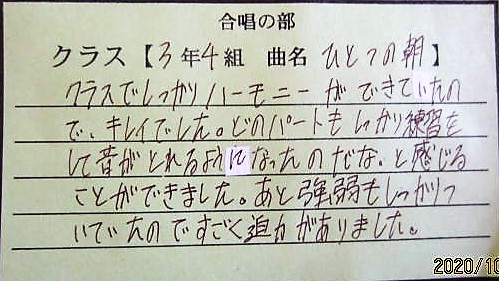 合唱の部
クラス【3年4組 曲名 ひとつの朝】
クラスでしっかりハーモニーができていたの
で、キレイでした。どのパートもしっかり練習を
して音がとれるようになったのだな。と感じる
ことができました。あと強弱もしっかりつ
いていたのですごく迫力がありました。
2020/10